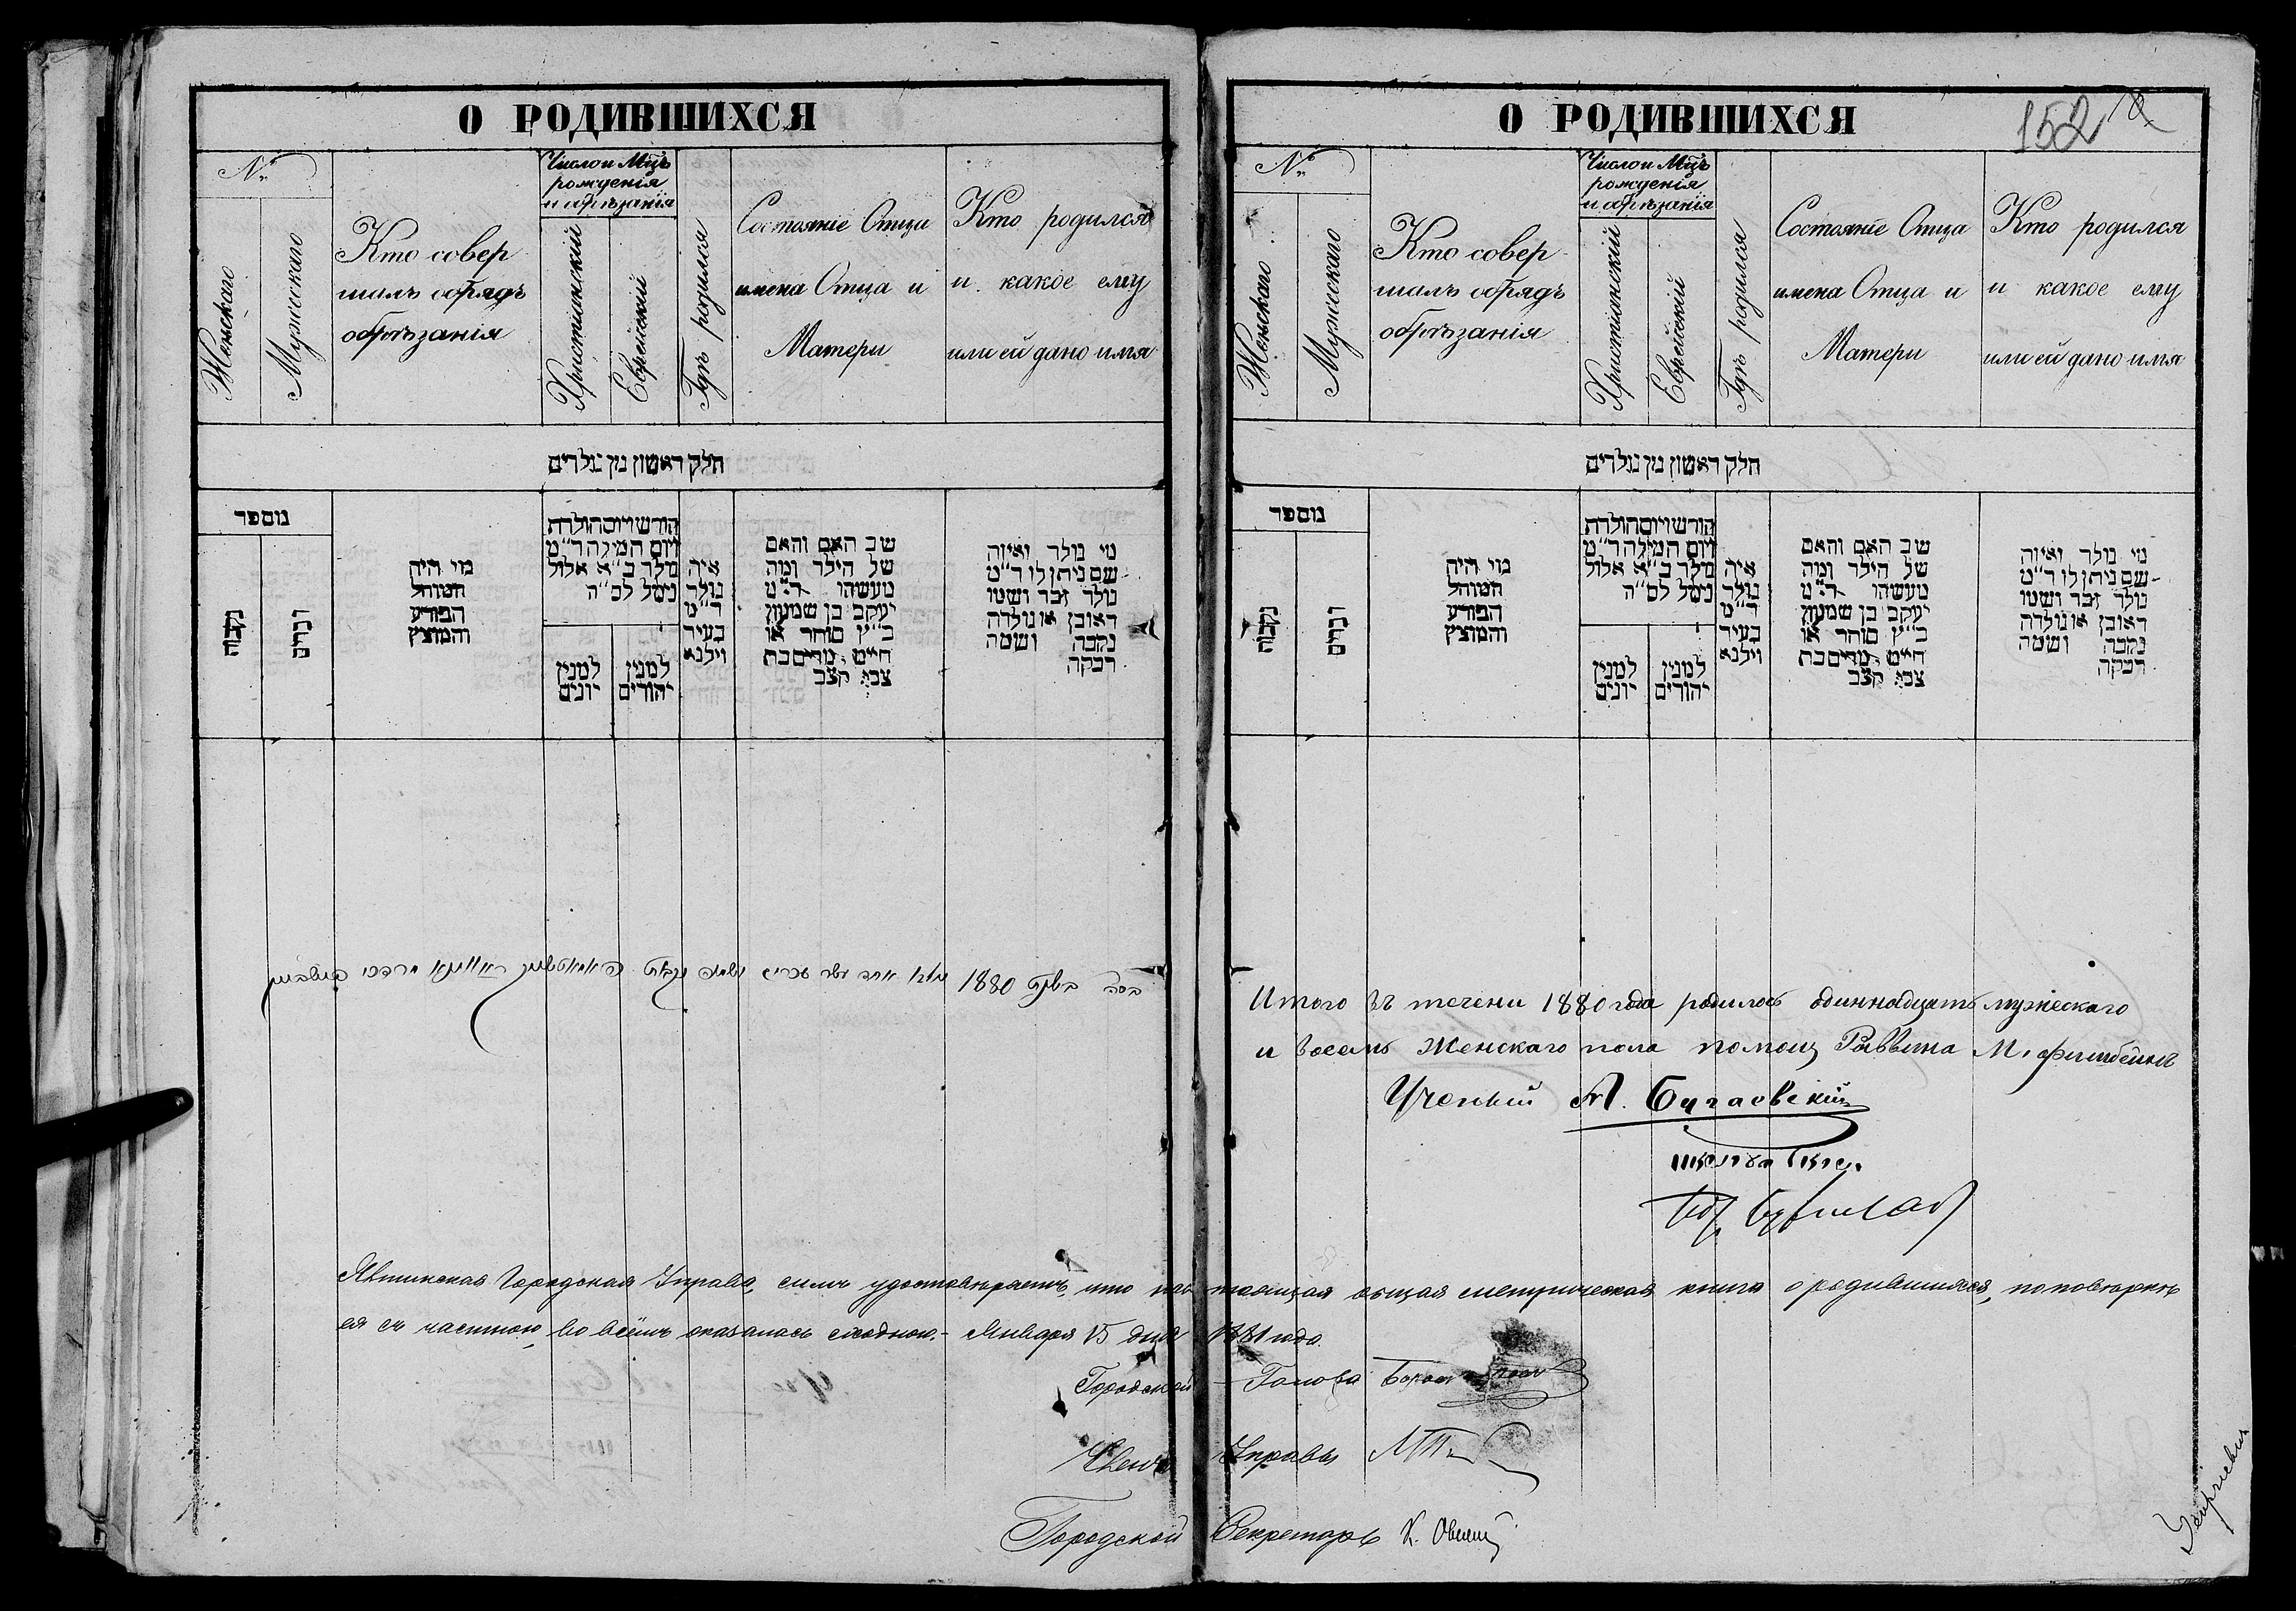 О РОДИВШИХСЯ
№
Женскаго
Мужескаго
Кто совер
шалъ обрядъ
обрѣзанія
Число и Мцъ
рожденія
и обрѣзанія
Христіанскій
Еврейскій
Гдѣ родился
Состояніе Отца
имена Отца и
Матери
Кто родился
и какое ему
или ей дано имя
חלק ראשון מן נולדים
מספר
נקבות
זכרים
מי היה
המוהל
הפורע
והמוצץ
חודש ויום הולדת
ויום המילה ד״מ
נולד ב״א אלול
נימל לס״ה
למנין
יונים
למנין
יהודים
איה
נולד
ד״מ
בעיר
ווילנא
שם האב והאם
של הילד ומה
מעשהו ד״מ
יעקב בן שמעון
כ״ץ סוחר או
חייט מרים בת
צבי קצב
מי נולד ואיזה
שם ניתן לו ד״מ
נולד זכר ושמו
ראובן או נולדה
נקבה ושמה
רבקה
בשנת 1880 אחד עשר זכרים ושמנה מרדכי
О РОДИВШИХСЯ
152
№
Женскаго
Мужескаго
Кто совер
шалъ обрядъ
обрѣзанія
Число и Мцъ
рожденія
и обрѣзанія
Христіанскій
Еврейскій
Гдѣ родился
Состояніе Отца
имена Отца и
Матери
Кто родился
и какое ему
или ей дано имя
חלק ראשון מן נולדים
מספר
נקבות
זכרים
מי היה
המוהל
הפורע
והמוצץ
חודש ויום הולדת
ויום המילה ד״מ
נולד ב״א אלול
נימל לס״ה
למנין
יונים
למנין
יהודים
איה
נולד
ד״מ
בעיר
ווילנא
שם האב והאם
של הילד ומה
מעשהו ד״מ
יעקב בן שמעון
כ״ץ סוחר או
חייט מרים בת
צבי קצב
מי נולד ואיזה
שם ניתן לו ד״מ
נולד זכר ושמו
ראובן או נולדה
נקבה ושמה
רבקה
Итого въ течени 1880 года родилось одиннадцать мужескаго
и восемь Женскаго пола помощ Раввина М. Фишбейнъ
Ученый А.
Городская Управа, симъ удостовѣряетъ, что настоящая общая метрическая книга о родившихся, по повѣркѣ
ея съ частною, во всёмъ оказалась сходною. - Января 15 дня 1881 года.
Городской Голова
Членъ Управы
Городской Секретарь К.